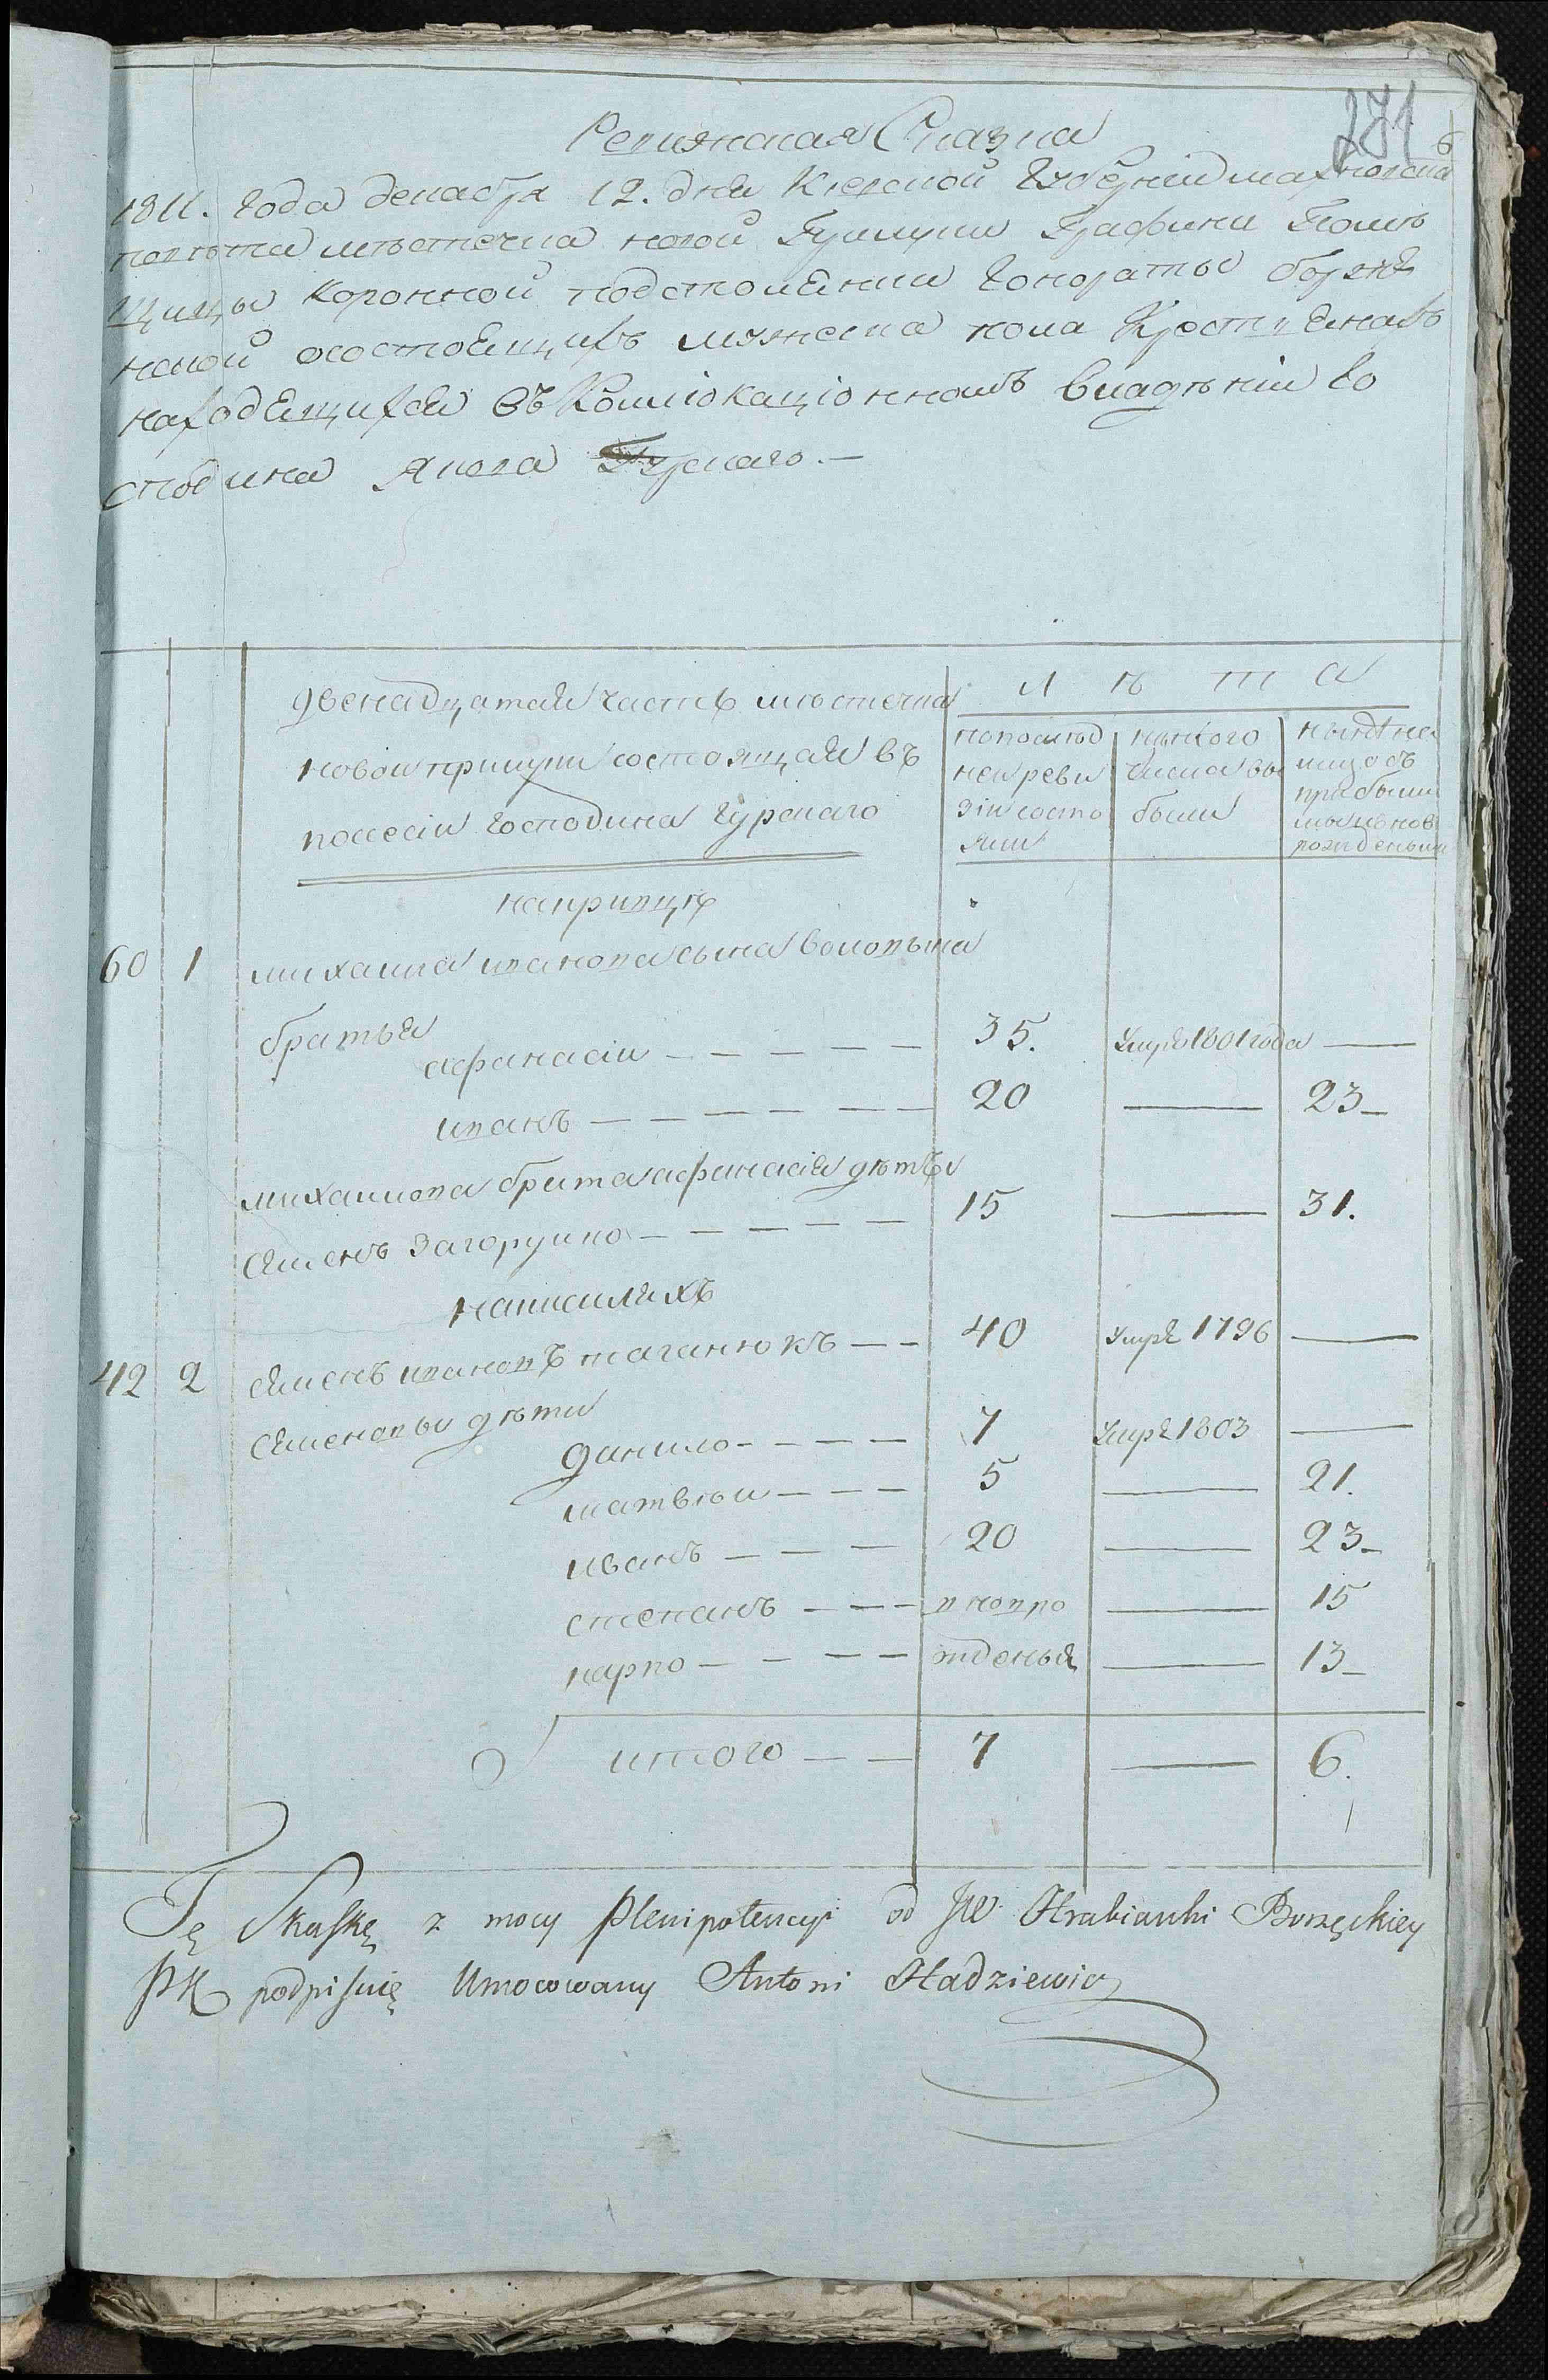 271
6
Ревижская Сказка
1811. Года декабря 12. дня Киевской Губерніи махновска
повѣта мѣстечка новой Прилуки Графини Помѣ
щицы Коронной подстолянки Гонораты борже
нской состоящихъ мужеска пола Крестиянахъ
находящихся въ Комплокаціонномъ владѣніи Го
сподина Якова Гурскаго. —
двенадцатая часть мѣстечка
новой прилуки состоящая въ
посесіи Господина Гурскаго
лѣта
попослѣд
ней реви
зіи состо
яли
изъ того
числа вы
были
нынѣ на
лицо съ
прибыли
мы и внов
рожденыи
накривцѣ
60 1 михаила иванова сына воловыка
братья
афанасіи — — — — — 35. Умре 1801 года —
иванъ — — — — — — 20 — 23
михаилова брата афанасія дѣти
Семенъ Загоруико — — — — 15 — 31.
написаляхъ
42 2 Семенъ ивановъ таганюкъ — — 40 Умре 1796 —
Семеновы дѣти
данило — — — — 7 Умре 1803 —
матвѣи — — — 5 — 21.
иванъ — — — 20 — 23
степанъ — — — вновро — 15
карпо — — — — жденыя — 13
итого — — 7 — 6.
Tę Skaskę z mocy Plenipotencyi od JW Hrabianki Borzęckiey
PK podpisuię Umocowany Antoni Hadziewicz